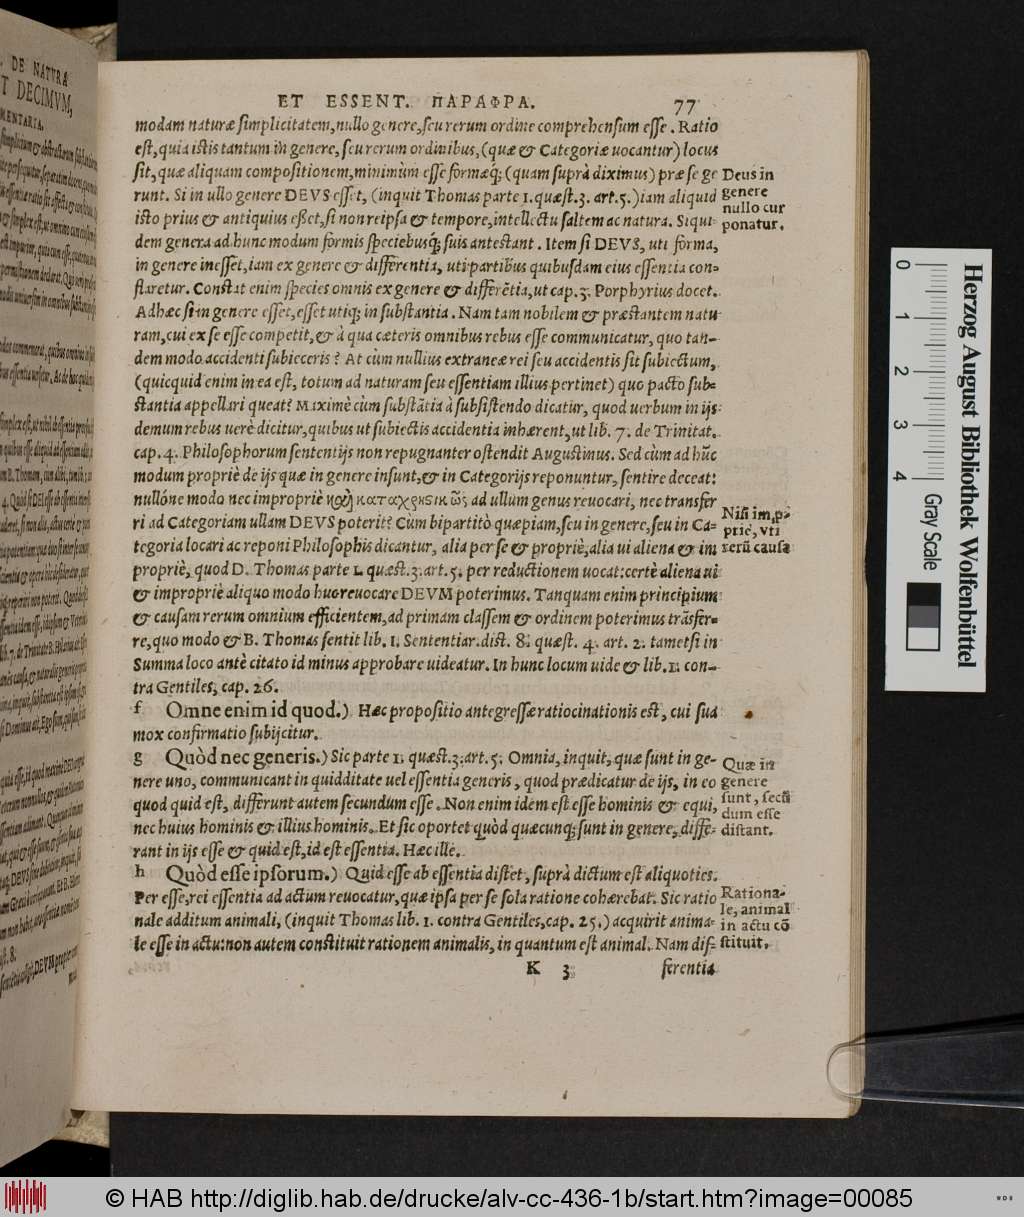 ET ESSENT. ΠΑΡΑΦΡΑ. 77
modam naturæ ſimplicitatem, nullo genere, ſeu rerum ordine comprehenſum eſſe. Ratio
eſt, quia iſtis tantum in genere, ſeu rerum ordinibus, (quæ & Categoriæ uocantur) locus
ſit, quæ aliquam compoſitionem, minimùm eſſe formæq́; (quam ſuprà diximus) præ ſe ge
runt. Si in ullo genere DEVS eſſet, (inquit Thomas parte 1. quæſt. 3. art. 5.) iam aliquid
iſto prius & antiquius eßet, ſi non reipſa & tempore, intellectu ſaltem ac natura. Siqui-
dem genera ad hunc modum formis ſpeciebusq́; ſuis anteſtant. Item ſi DEVS, uti forma,
in genere ineſſet, iam ex genere & differentia, uti partibus quibuſdam eius eſſentia con-
flaretur. Conſtat enim ſpecies omnis ex genere & differẽtia, ut cap. 3. Porphyrius docet.
Adhæc ſi in genere eſſet, eſſet utiq; in ſubſtantia. Nam tam nobilem & præſtantem natu
ram, cui ex ſe eſſe competit, & à qua cæteris omnibus rebus eſſe communicatur, quo tan-
dem modo accidenti ſubieceris? At cùm nullius extraneæ rei ſeu accidentis ſit ſubiectum,
(quicquid enim in ea eſt, totum ad naturam ſeu eſſentiam illius pertinet) quo pacto ſub-
ſtantia appellari queat? Maximè cùm ſubſtãtia à ſubſiſtendo dicatur, quod uerbum in ijs
demum rebus uerè dicitur, quibus ut ſubiectis accidentia inhærent, ut lib. 7. de Trinitat.
cap. 4. Philoſophorum ſententijs non repugnanter oſtendit Auguſtinus. Sed cùm ad hũc
modum propriè de ijs quæ in genere inſunt, & in Categorijs reponuntur, ſentire deceat:
nullóne modo nec impropriè καὶ καταχρηστικῶς ad ullum genus reuocari, nec transfer
ri ad Categoriam ullam DEVS poterit? Cùm bipartitò quæpiam, ſeu in genere, ſeu in Ca-
tegoria locari ac reponi Philoſophis dicantur, alia per ſe & propriè, alia ui aliena & im
propriè, quod D. Thomas parte 1. quæſt. 3. art. 5. per reductionem uocat: certè aliena ui
& impropriè aliquo modo huc reuocare DEVM poterimus. Tanquam enim principium
& cauſam rerum omnium efficientem, ad primam claſſem & ordinem poterimus trãsfer-
re, quo modo & B. Thomas ſentit lib. 1. Sententiar. diſt. 8. quæſt. 4. art. 2. tametſi in
Summa loco antè citato id minus approbare uideatur. In hunc locum uide & lib. 1. con-
tra Gentiles, cap. 26.
f Omne enim id quod.) Hæc propoſitio antegreſſæ ratiocinationis eſt, cui ſua
mox confirmatio ſubijcitur.
g Quòd nec generis.) Sic parte 1. quæſt. 3. art. 5. Omnia, inquit, quæ ſunt in ge-
nere uno, communicant in quidditate uel eſſentia generis, quod prædicatur de ijs, in eo
quod quid eſt, differunt autem ſecundum eſſe. Non enim idem eſt eſſe hominis & equi,
nec huius hominis & illius hominis. Et ſic oportet quòd quæcunq; ſunt in genere, diffe-
rant in ijs eſſe & quid eſt, id eſt eſſentia. Hæc ille.
h Quòd eſſe ipſorum.) Quid eſſe ab eſſentia diſtet, ſuprà dictum eſt aliquoties.
Per eſſe, rei eſſentia ad actum reuocatur, quæ ipſa per ſe ſola ratione cohærebat. Sic ratio
nale additum animali, (inquit Thomas lib. 1. contra Gentiles, cap. 25.) acquirit anima-
le eſſe in actu: non autem conſtituit rationem animalis, in quantum eſt animal. Nam dif-
K 3 ferentia
Deus in
genere
nullo cur
ponatur.
Niſi im,p̱
priè, vti
rerũ cauſa
Quæ in
genere
ſunt, ſecũ
dum eſſe
diſtant.
Rationa-
le, animal
in actu cõ
ſtituit.
DE NATVRA
T DECIMVM,
MENTARIA.
0 1 2 3 4
Gray Scale
Herzog August Bibliothek Wolfenbüttel
© HAB http://diglib.hab.de/drucke/alv-cc-436-1b/start.htm?image=00085